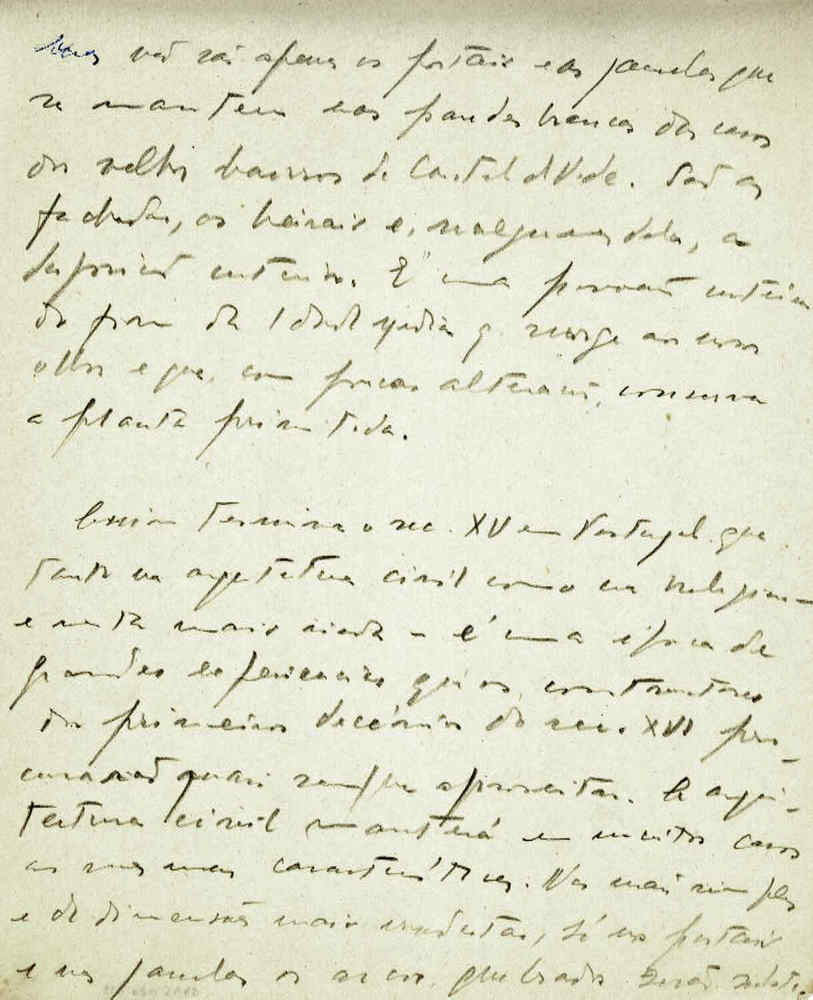 Mas não são apenas os portais e as janelas que
se mantem nas paredes brancas das casas
dos velhos bairros de Castel de Vide. São as
fachadas, os beirais e, nalgumas delas, a
disposição interior. É uma povoação inteira
do fim da Idade Média q. surge aos nossos
olhos e que, com poucas alterações, conserva
a planta primitiva.
Assim termina o sec. XV em Portugal que
tanto na arquitetura civil como na religiosa –
e nesta mais ainda – é uma época de
grandes experiencias que os construtores
dos primeiros decénios do sec. XVI pro-
curarão quasi sempre aproveitar. A arqui-
tectura civil manterá em muitos casos
as mesmas caracteristicas. Nas mais simples
e de dimensões mais reduzidas, só nos portais
e nas janelas os arcos quebrados serão